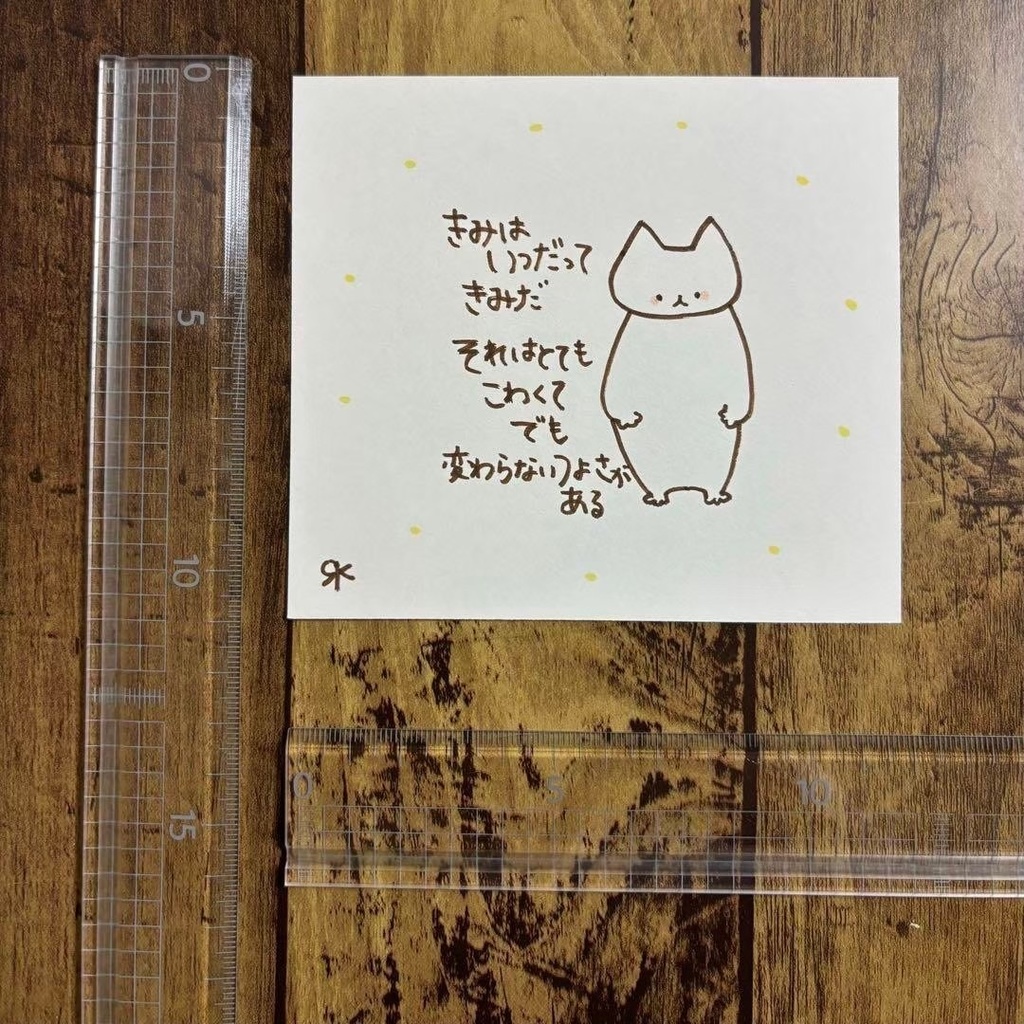 きみは
いつだって
きみだ
それはとても
こわくて
でも
変わらないつよさが
ある
0
5
10
15
0
5
10